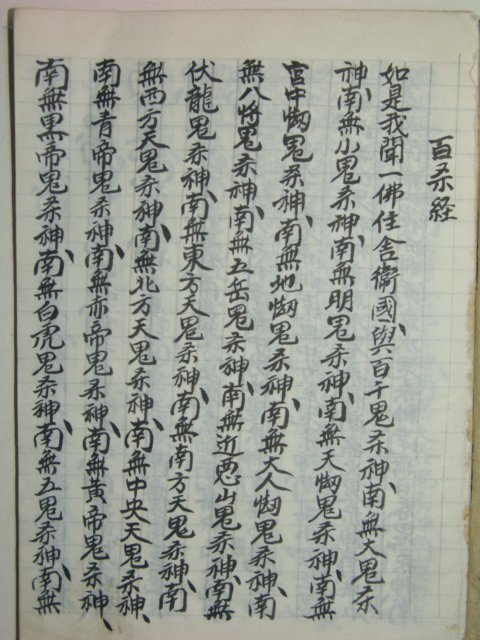 百杀経
如是我聞一佛住舍衛國、與百千鬼杀神、南無大鬼杀
神、南無小鬼杀神、南無明鬼杀神、南無天鬼杀神、南無
宮中鬼杀神、南無地鬼杀神、南無大人鬼杀神、南
無八將鬼杀神、南無五岳鬼杀神、南無近惡山鬼杀神、南無
伏龍鬼杀神、南無東方天鬼杀神、南無南方天鬼杀神、南
無西方天鬼杀神、南無北方天鬼杀神、南無中央天鬼杀神、
南無青帝鬼杀神、南無赤帝鬼杀神、南無黄帝鬼杀神、
南無黒帝鬼杀神、南無白虎鬼杀神、南無五鬼杀神、南無